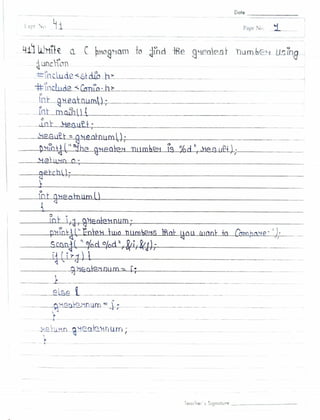 Date
Expt. No. 41
Page No. 1
41) Write a C program to find the greatest number using
function
#include<stdio.h>
#include <conio.h>
int greatnum();
int main() {
int result;
result = greatnum();
printf("The greater number is %d", result);
return 0;
getch();
}
int greatnum()
{
int i,j, greaternum;
printf("Enter two numbers that you want to Compare:");
scanf("%d %d", &i, &j);
if (i>j) {
greaternum = i;
}
else {
greaternum = j;
}
return greaternum;
}
Teacher's Signature